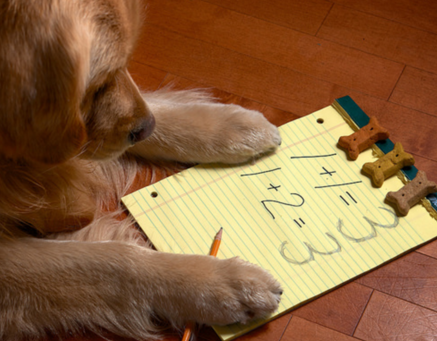 1+1=3
1+2=3